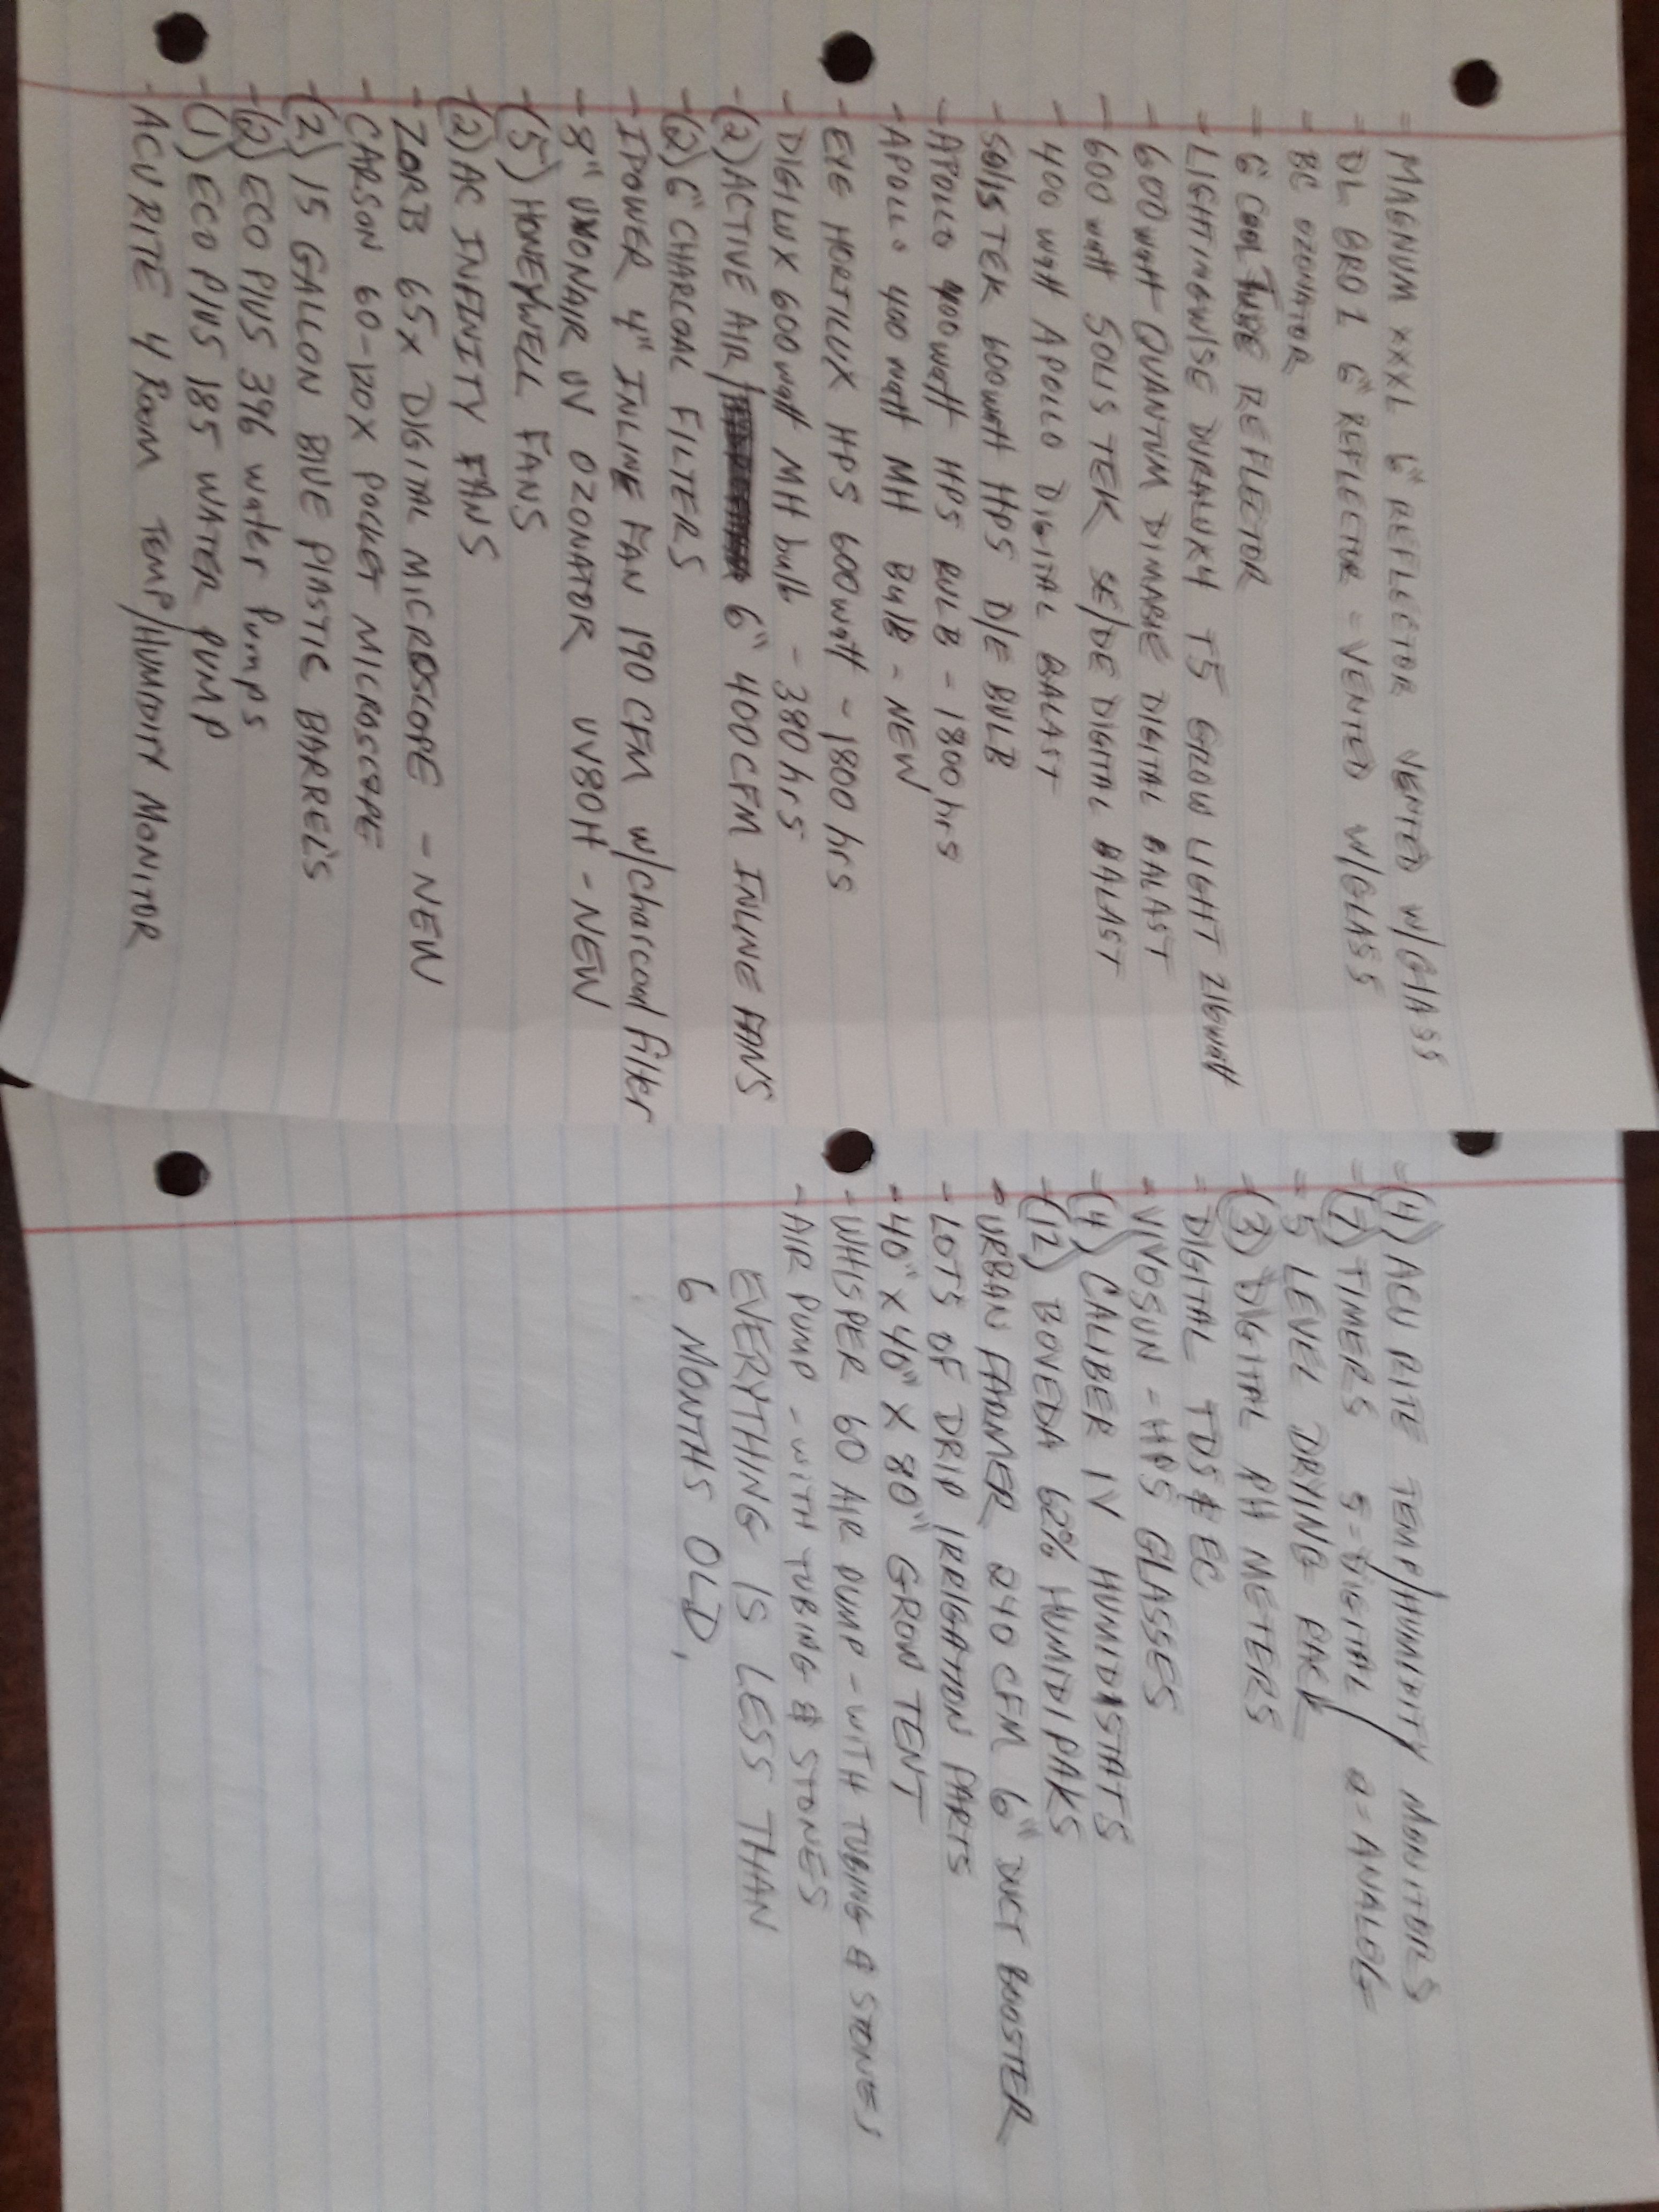 - MAGNUM XXXL 6" REFLECTOR VENTED W/GLASS
- DL PRO 1 6" REFLECTOR - VENTED W/GLASS
- BC OZONATOR
- 6" COOL TUBE REFLECTOR
- LIGHTINGWISE DURALUX4 T5 GROW LIGHT 216watt
- 600watt QUANTUM DIMABLE DIGITAL BALAST
- 600 watt SOLIS TEK SE/DE DIGITAL BALAST
- 400 watt APOLLO DIGITAL BALAST
- SOLIS TEK 600watt HPS D/E BULB
- APOLLO 400watt HPS BULB - 1800hrs
- APOLLO 400 watt MH BulB - NEW
- EYE HORTILUX HPS 600watt - 1800 hrs
- DIGILUX 600watt MH bulb - 380 hrs
- (2) ACTIVE AIR 6" 400CFM INLINE FANS
- (2) 6" CHARCOAL FILTERS
- IPOWER 4" INLINE FAN 190 CFM w/charcoal filter
- 8" UVONAIR UV OZONATOR UV80H - NEW
- (5) HONEYWELL FANS
- (2) AC INFINITY FANS
- ZORB 65x DIGITAL MICROSCOPE - NEW
- CARSON 60-120x POCKET MICROSCOPE
- (2) 15 GALLON BLUE PLASTIC BARREL'S
- (2) ECO PLUS 396 water Pumps
- (1) ECO PLUS 185 WATER PUMP
- ACURITE 4 ROOM TEMP/HUMIDITY MONITOR
- (4) ACU RITE TEMP/HUMIDITY MONITORS
- (7) TIMERS 5=DIGITAL / 2=ANALOG
- 5 LEVEL DRYING RACK
- (3) DIGITAL PH METERS
- DIGITAL TDS & EC
- VIVOSUN - HPS GLASSES
- (4) CALIBER IV HUMIDISTATS
- (12) BOVEDA 62% HUMIDIPAKS
- URBAN FARMER 240 CFM 6" DUCT BOOSTER
- LOTS OF DRIP IRRIGATION PARTS
- 40" X 40" X 80" GROW TENT
- WHISPER 60 AIR PUMP - WITH TUBING & STONES
- AIR PUMP - WITH TUBING & STONES
EVERYTHING IS LESS THAN
6 MONTHS OLD.